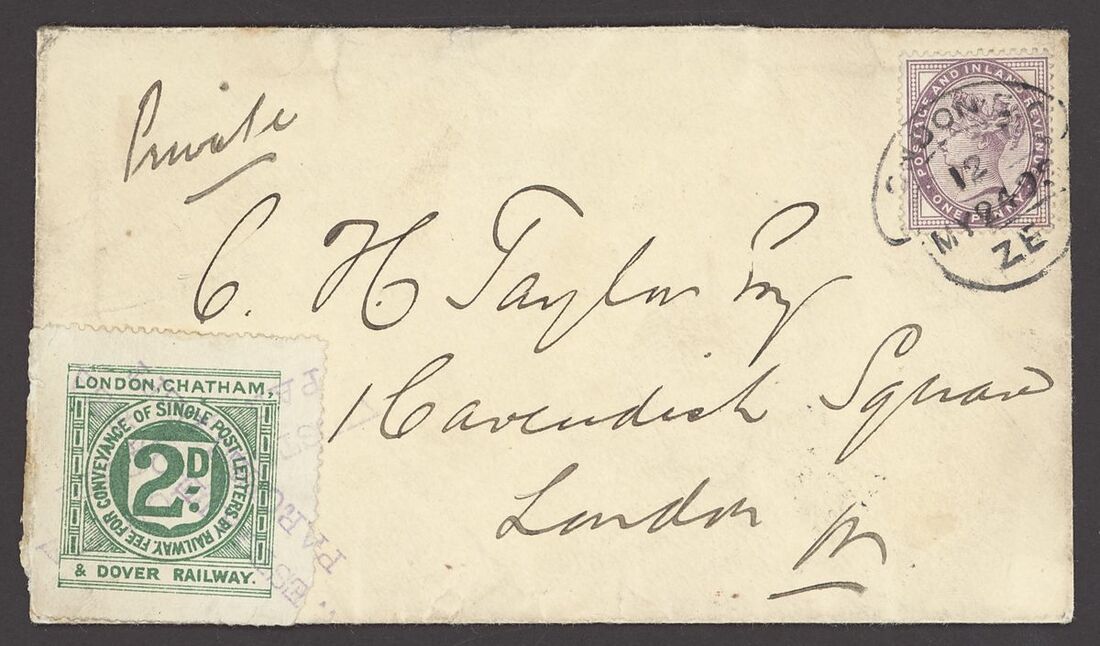 Private
POSTAGE AND INLAND REVENUE
ONE PENNY
LONDON
12
MY 24 95
ZE
C. H. Taylor Esq
1 Cavendish Square
London
W
LONDON, CHATHAM,
FEE FOR CONVEYANCE OF SINGLE POST LETTERS BY RAILWAY.
2D.
& DOVER RAILWAY.
PARC